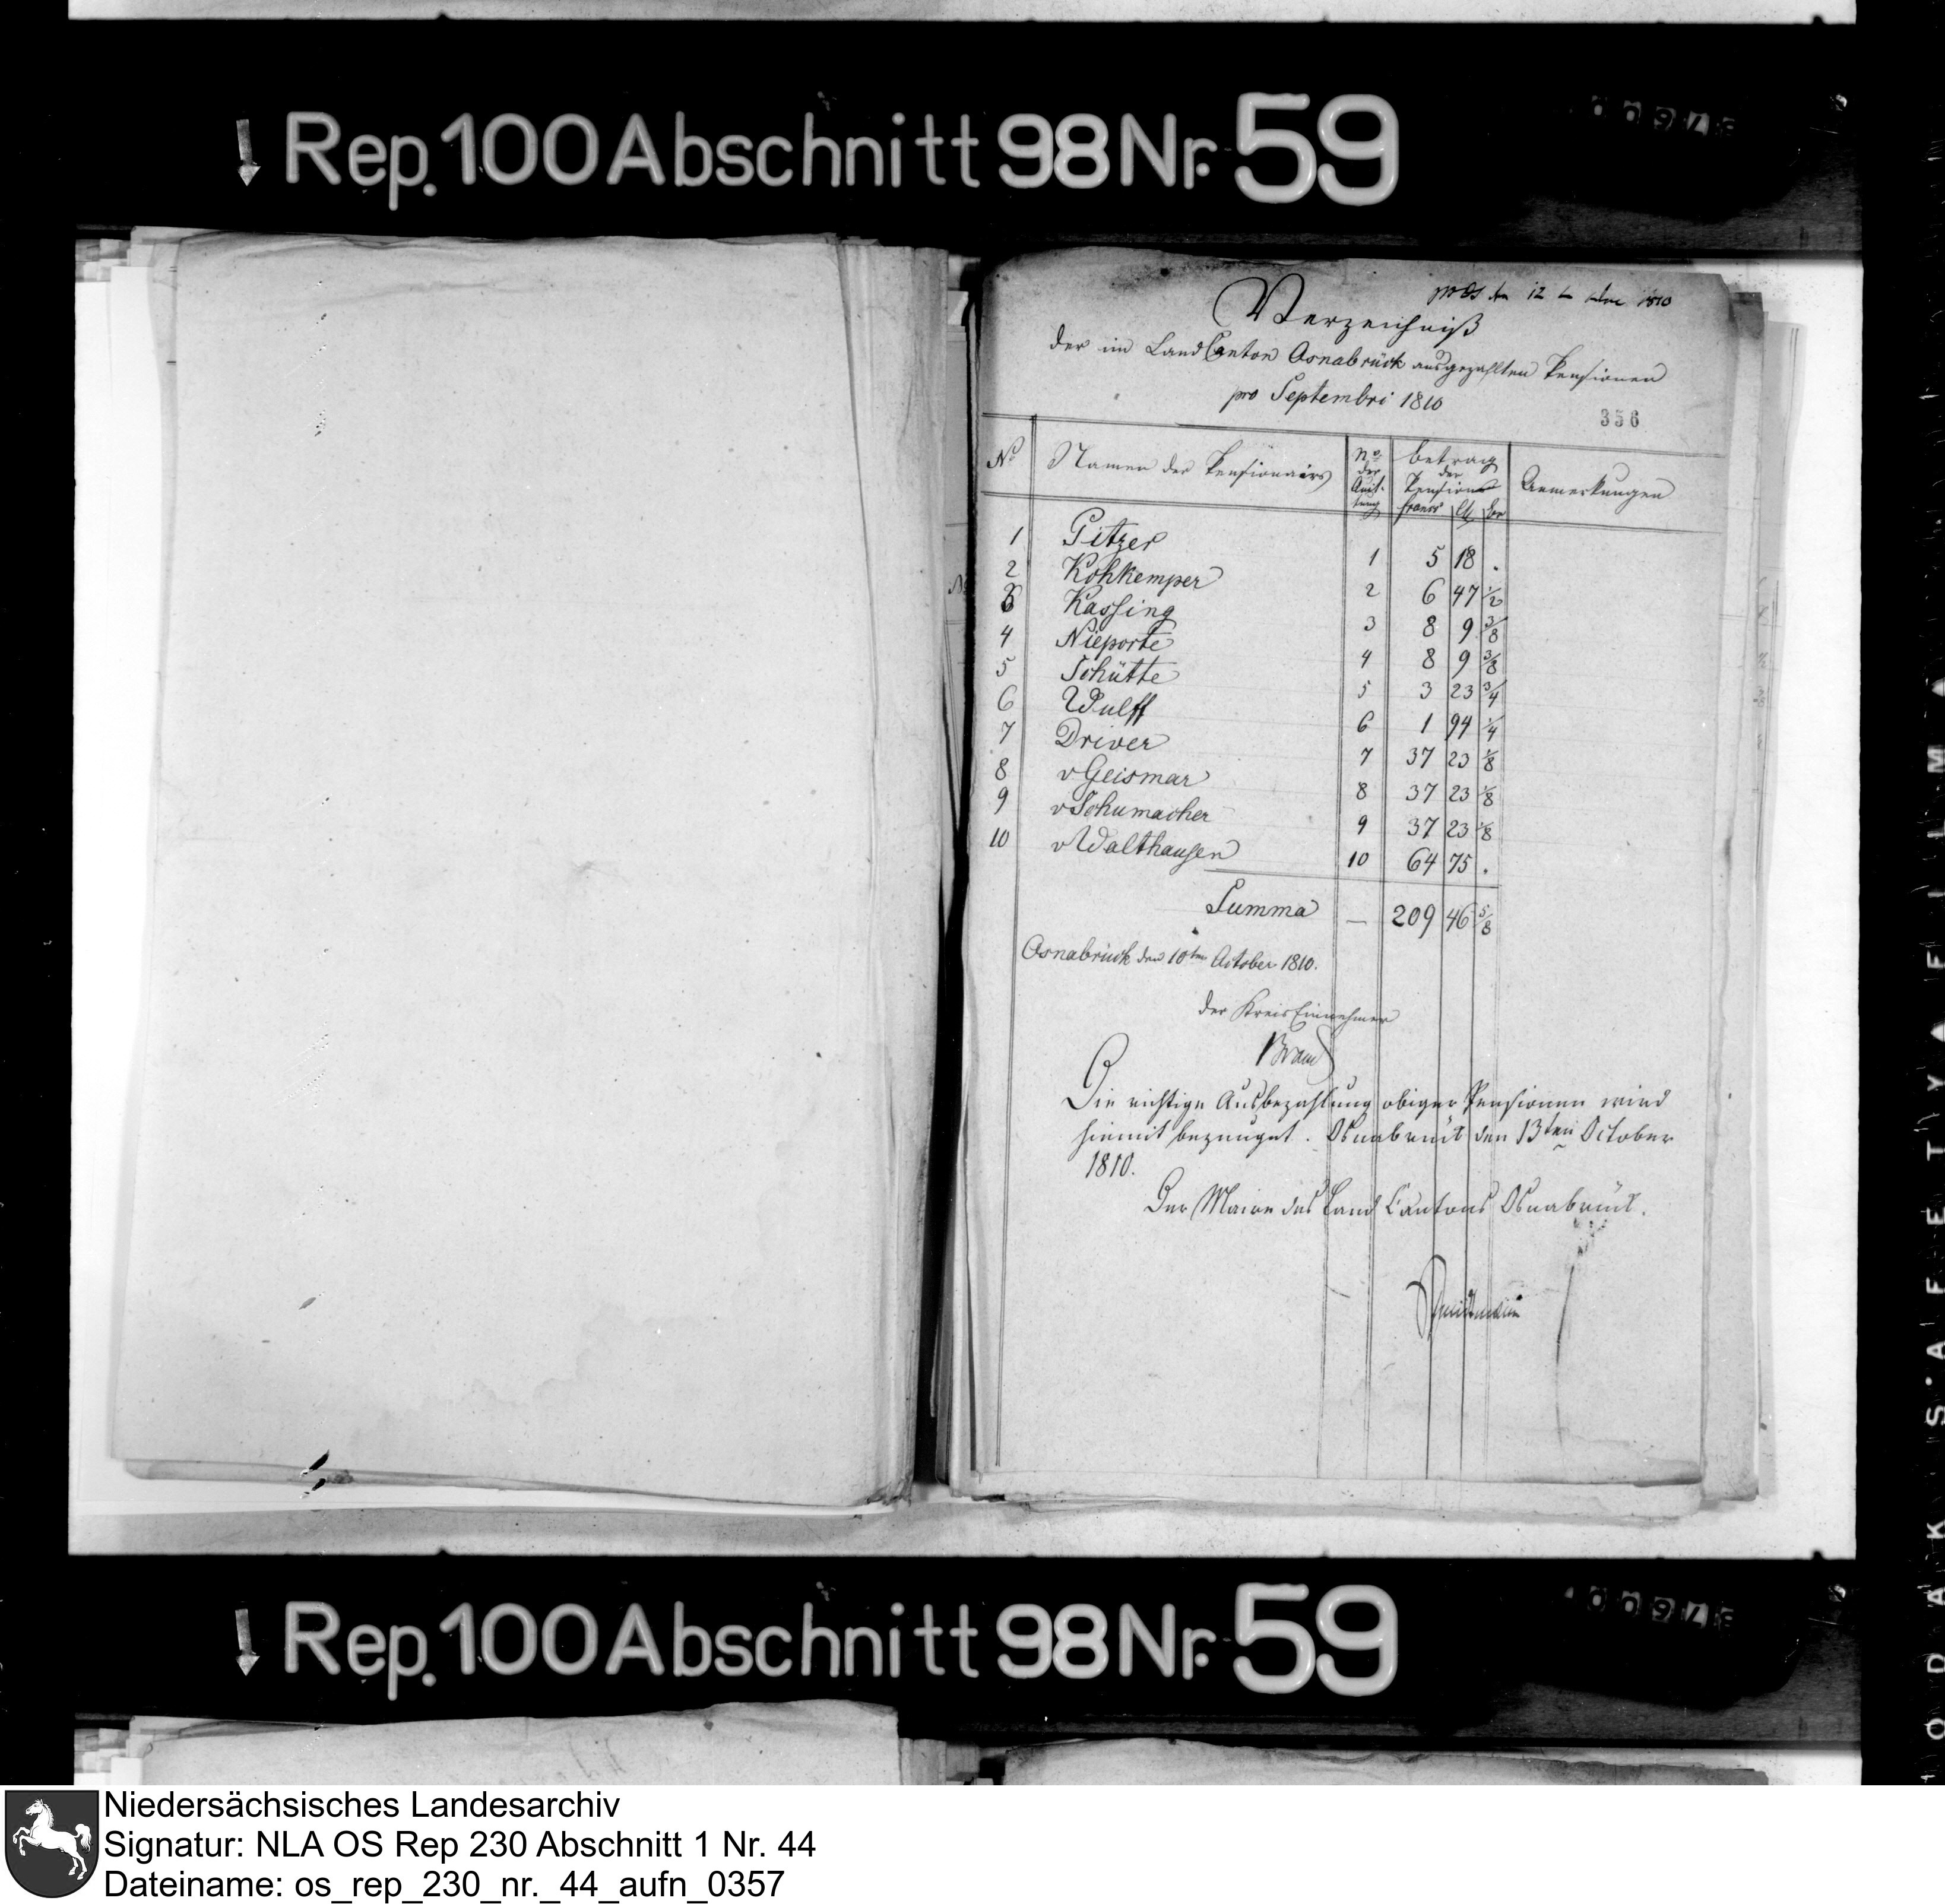 Rep. 100 Abschnitt 98 Nr. 59
12 1810
Verzeichniß
der im Land Canton Osnabrück ausgezahlten Pensionen
pro Septembri 1810
356
No Namen der Pensionairs No der Quit- tung betrag der Pension francs Ct Anmerkungen
1 Pitzer 1 5 18 .
2 Kohkemper 2 6 47 1/2
3 Kassing 3 8 9 3/8
4 Nieporte 4 8 9 3/8
5 Schütte 5 3 23 3/4
6 Wulff 6 1 94 1/4
7 Driver 7 37 23 1/8
8 v Geismar 8 37 23 1/8
9 v Schumacher 9 37 23 1/8
10 v Walthausen 10 64 75 .
Summa — 209 46 5/8
Osnabrück den 10ten October 1810.
der Kreis Einnehmer
Die richtige Ausbezahlung obiger Pensionen wird
hiemit bezeuget. Osnabrück den 13ten October
1810.
Der Maire des Land Cantons Osnabrück.
Rep. 100 Abschnitt 98 Nr. 59
Niedersächsisches Landesarchiv
Signatur: NLA OS Rep 230 Abschnitt 1 Nr. 44
Dateiname: os_rep_230_nr._44_aufn_0357